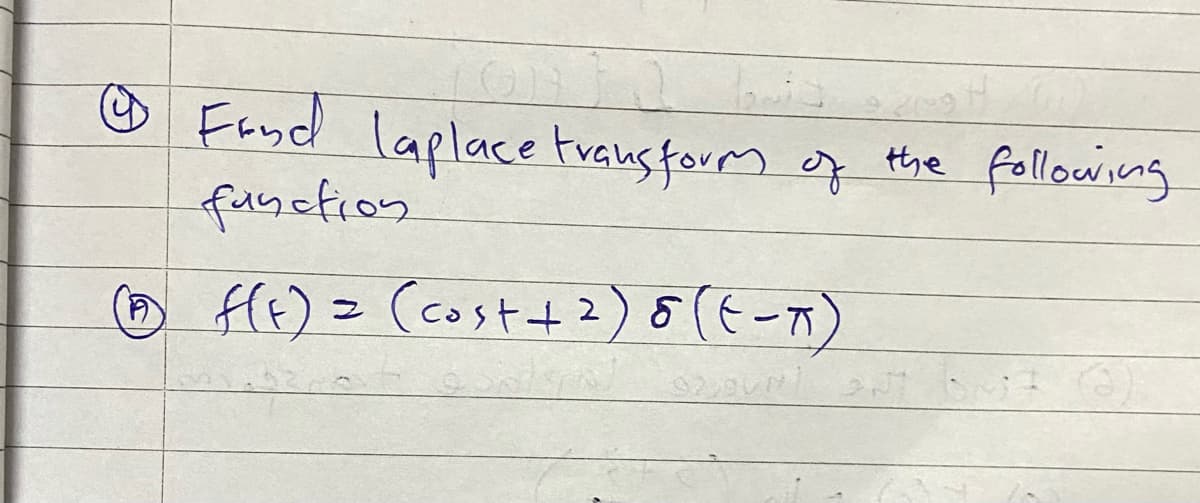 ④ Find laplace transform of the following
function
Ⓐ f(t) = (cost + 2) δ(t - π)